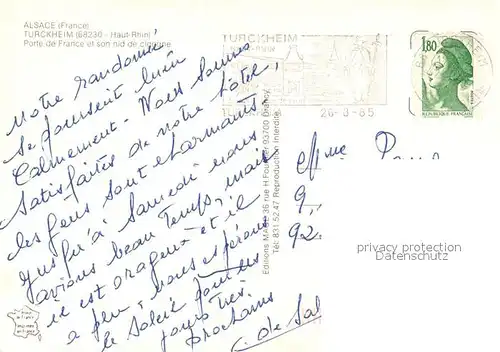 ALSACE (France)
TURCKHEIM (68230 - Haut-Rhin)
Porte de France et son nid de cigogne
TURCKHEIM
HAUT-RHIN
26-8-85
1,80
REPUBLIQUE FRANÇAISE
Notre randonnée
se poursuit bien
Calmement. Nous sommes
satisfaites de notre hôtel,
les gens sont charmants.
Jusqu'à Samedi nous
avions beau Temps, mais
il est orageux et il
a plu, nous espérons
le soleil pour les
jours très
prochains
Editions MAGE 36 rue H Fournier 93700 Drancy
tél: 831.52.47 Reproduction Interdite
Mme
9,
92
privacy protection
Datenschutz